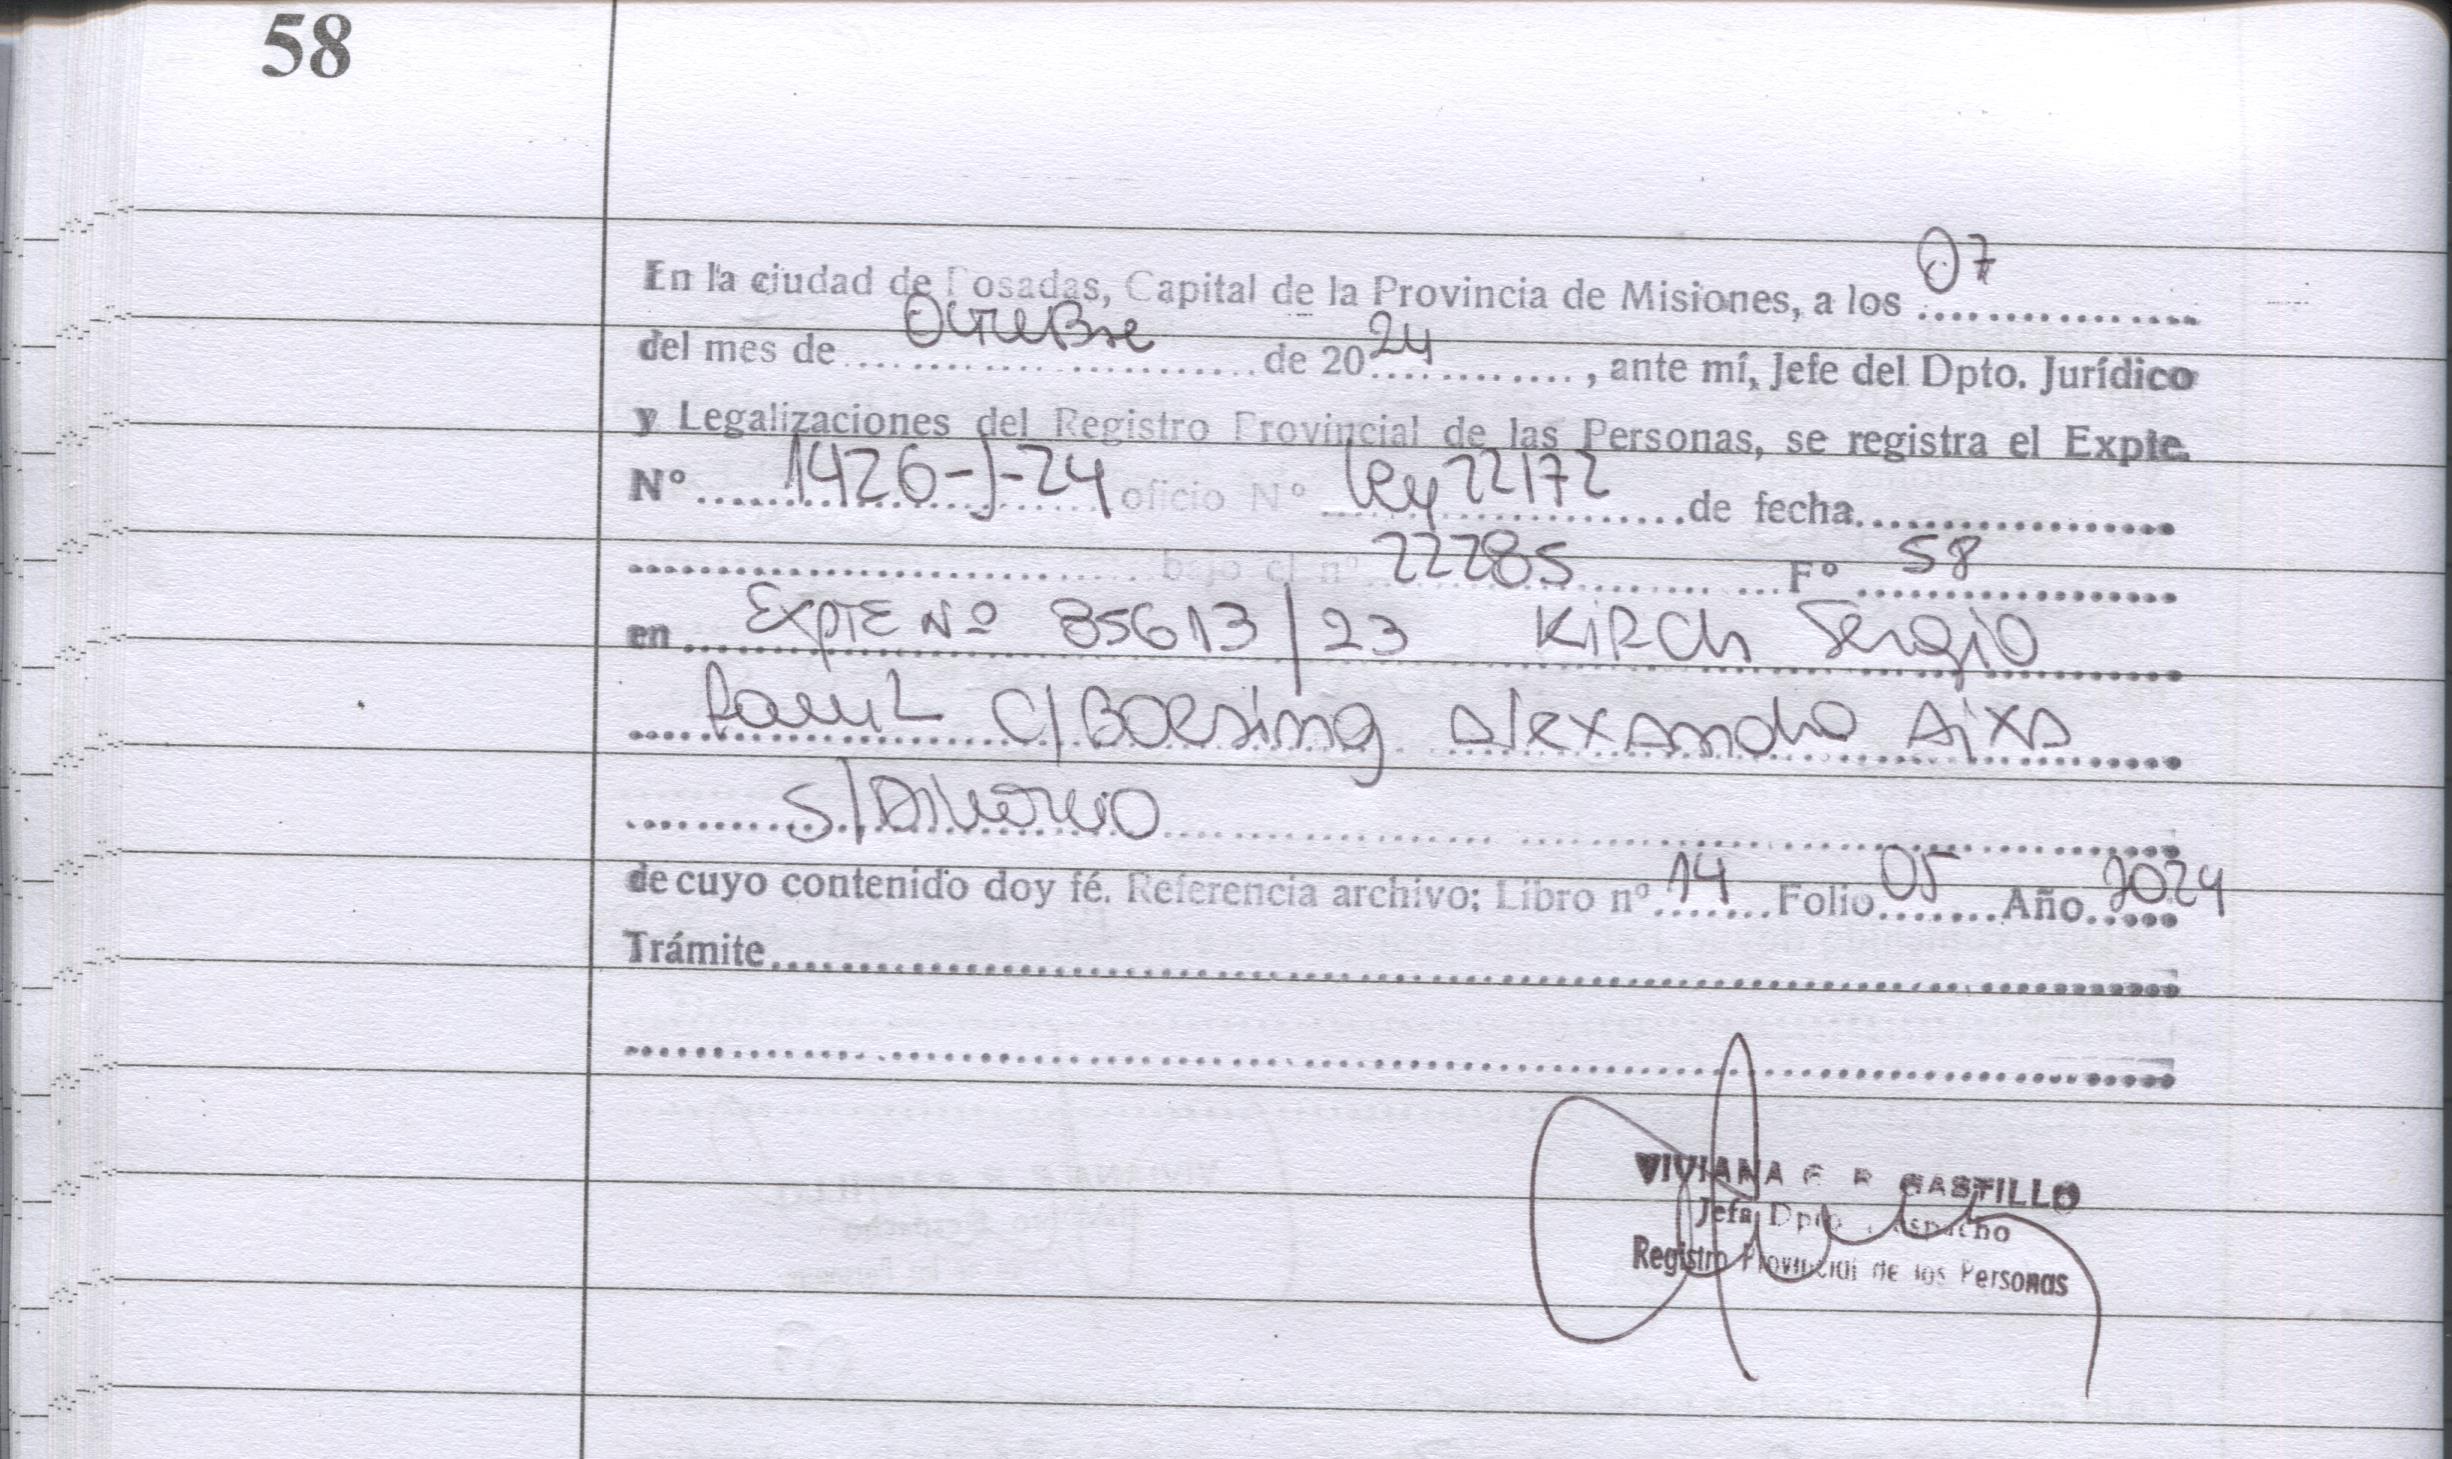 58
En la ciudad de Posadas, Capital de la Provincia de Misiones, a los 07
del mes de Octubre de 2024, ante mí, Jefe del Dpto. Jurídico
y Legalizaciones del Registro Provincial de las Personas, se registra el Expte.
Nº 1426-J-24 oficio Nº ley 22172 de fecha
bajo el nº 22285 Fº 58
en Expte Nº 85613/23 Kirch Sergio
C/ Boesing Alexandra Aixa
S/ Divorcio
de cuyo contenido doy fé. Referencia archivo: Libro nº 14 Folio 05 Año 2024
Trámite
VIVIANA CASTILLO
Jefa Dpto. Despacho
Registro Provincial de las Personas